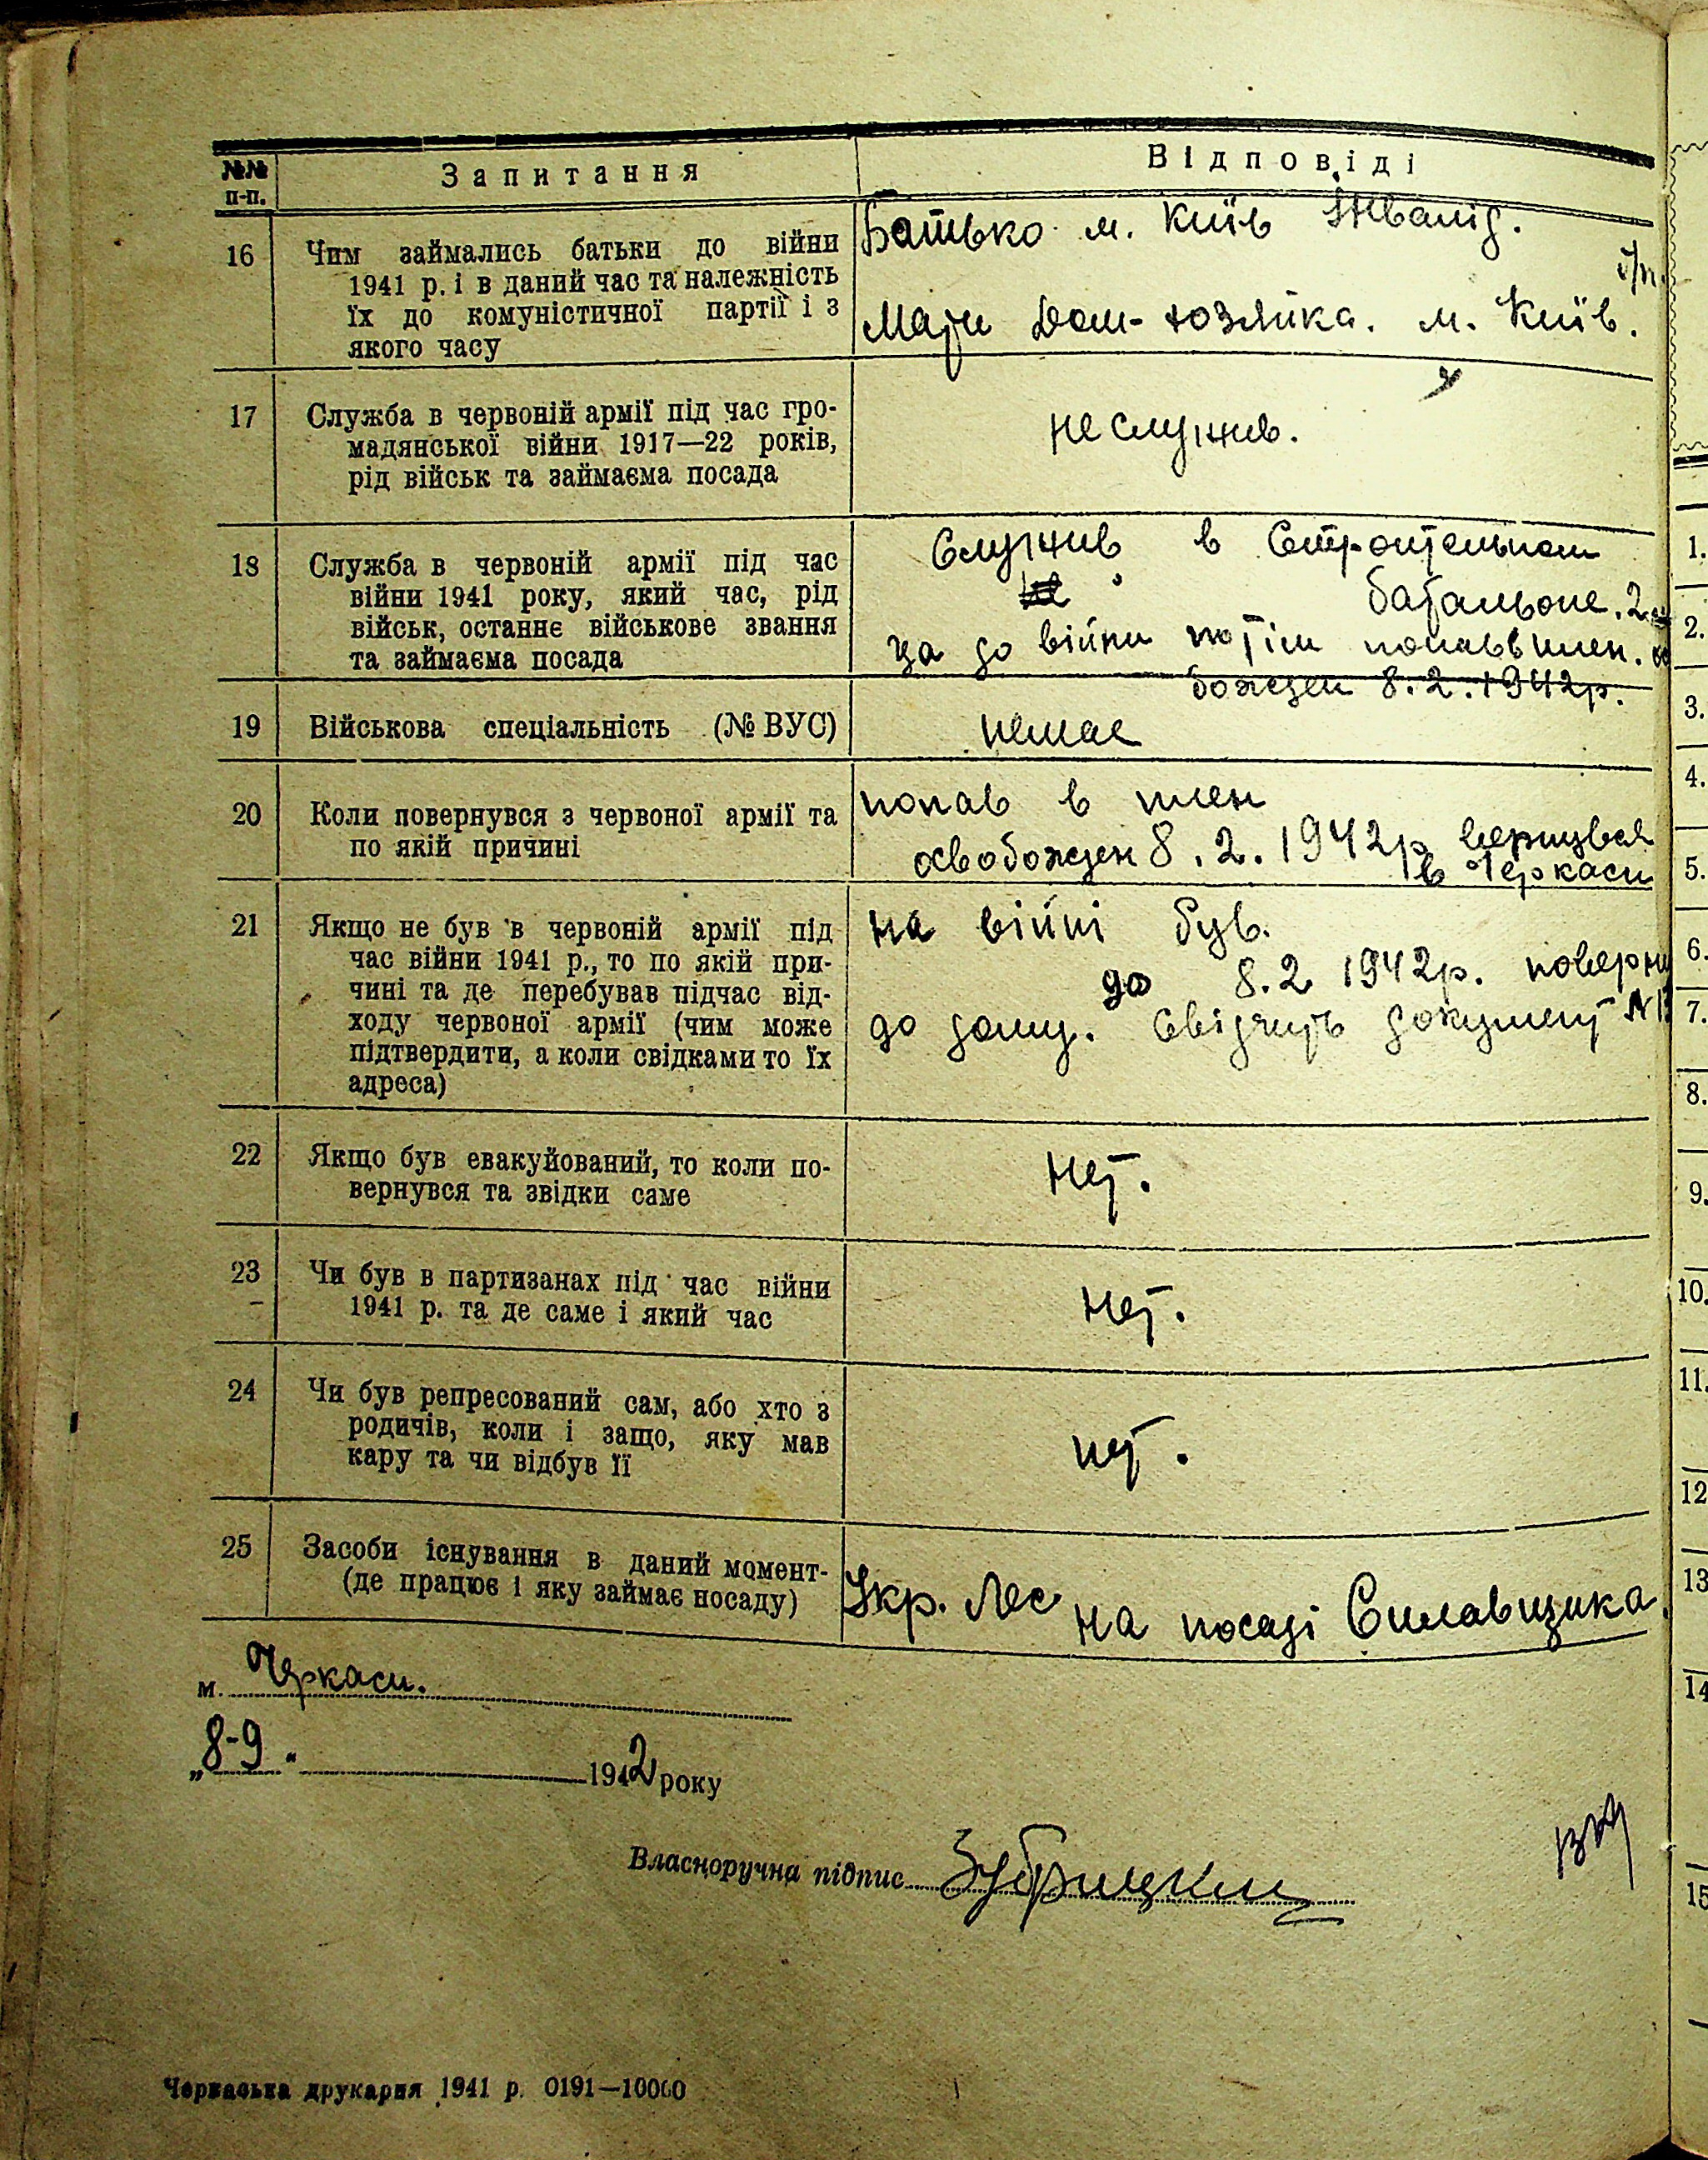 №№ п-п.
Запитання
Відповіді
16
Чим займались батьки до війни
1941 р. і в даний час та належність
їх до комуністичної партії і з
якого часу
Батько м. Київ Інвалід.
б/п.
Мати Дом-хозяйка. м. Київ.
17
Служба в червоній армії під час гро-
мадянської війни 1917—22 років,
рід військ та займаєма посада
не служив.
18
Служба в червоній армії під час
війни 1941 року, який час, рід
військ, останнє військове звання
та займаєма посада
Служив в Строительном
батальоне. 2
за до війни потім попав в плен. ос
божден 8.2.1942р.
19
Військова спеціальність (№ ВУС)
немає
20
Коли повернувся з червоної армії та
по якій причині
попав в плен
освобожден 8.2.1942р вернувся
в Черкаси
21
Якщо не був в червоній армії під
час війни 1941 р., то по якій при-
чині та де перебував підчас від-
ходу червоної армії (чим може
підтвердити, а коли свідками то їх
адреса)
на війні був.
до 8.2 1942р. поверну
до дому. Свідчить документ №1
22
Якщо був евакуйований, то коли по-
вернувся та звідки саме
Нет.
23
Чи був в партизанах під час війни
1941 р. та де саме і який час
Нет.
24
Чи був репресований сам, або хто з
родичів, коли і защо, яку мав
кару та чи відбув її
нет.
25
Засоби існування в даний момент-
(де працює і яку займає носаду)
Укр. Лес на посаді Сплавщика.
м. Черкаси.
„8-9" 1942 року
Власноручна підпис Зубрицкий
Черкаська друкарня 1941 р. 0191—10000
1.
2.
3.
4.
5.
6.
7.
8.
9.
10.
11.
12
13
14
15